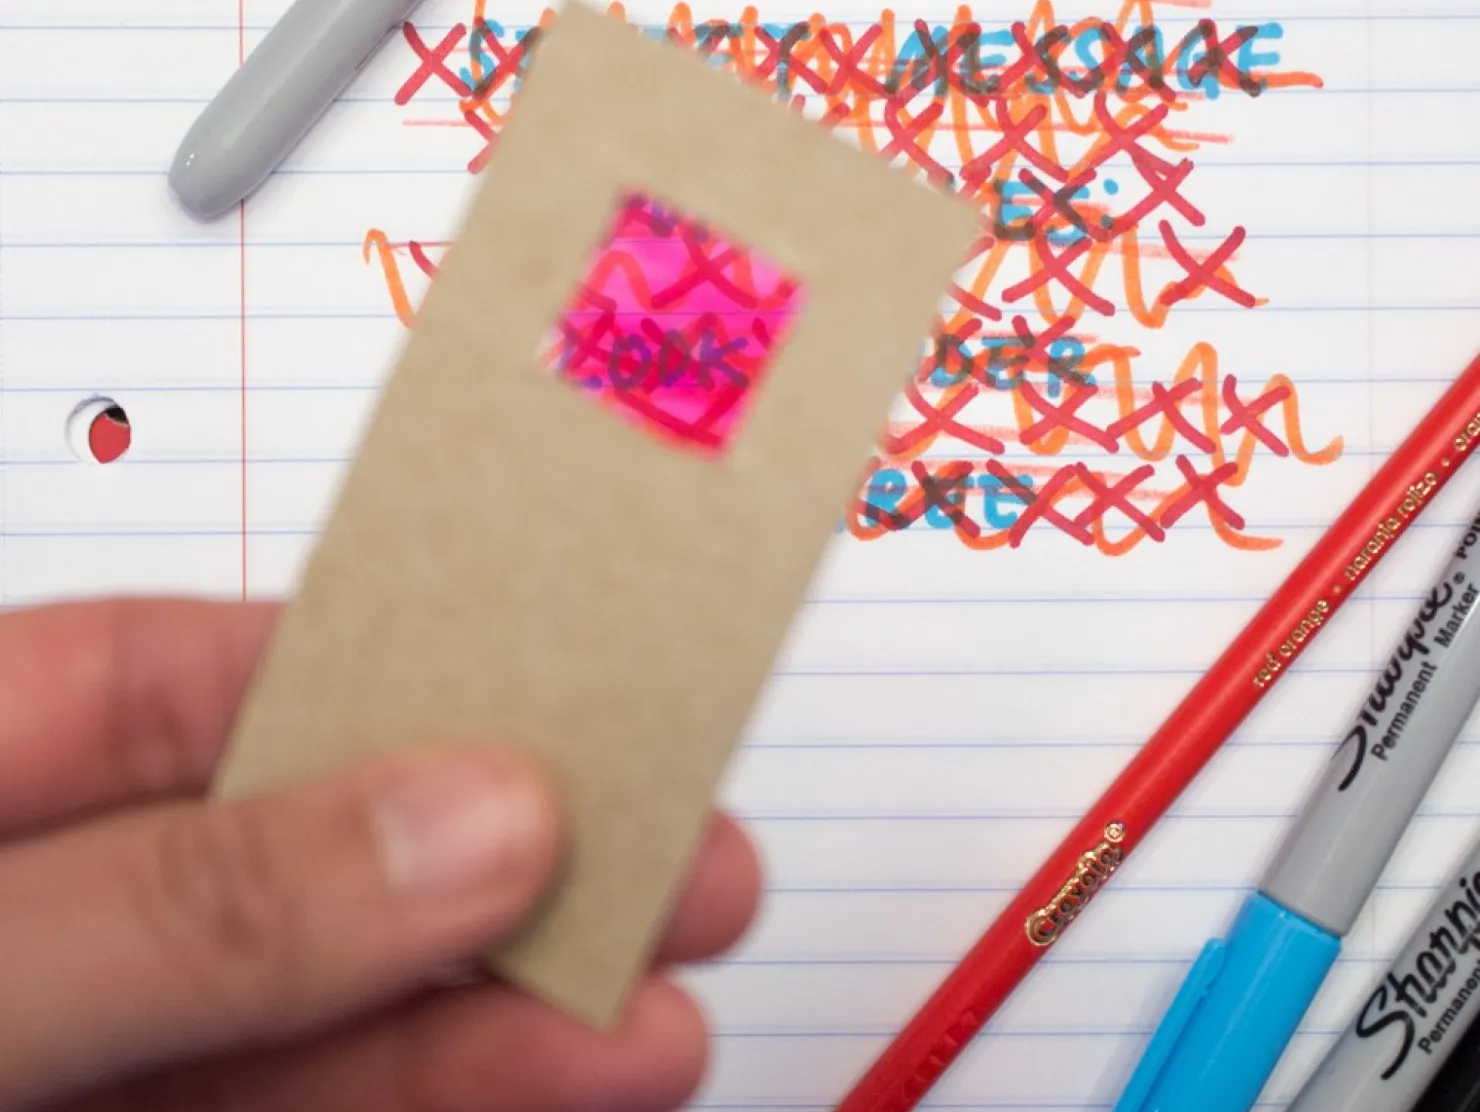 SECRET MESSAGE
ES:
LOOK DER
REE
Crayola® red orange • naranja rojizo •
Sharpie®
Permanent Marker
Sharpie
Permanent